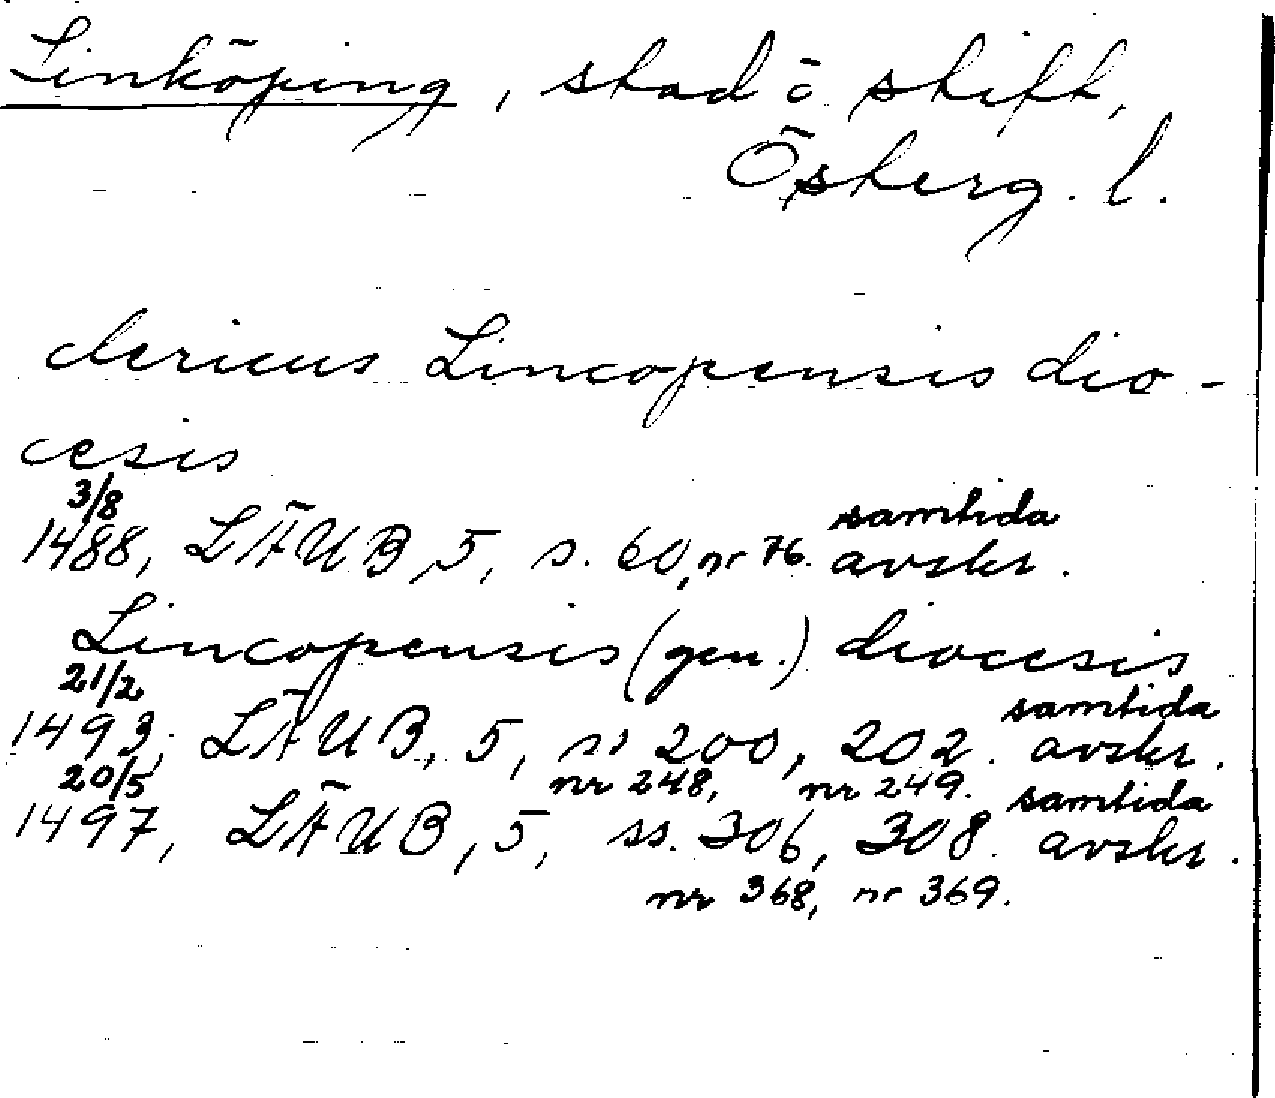 Linköping, stad ō stift,
Österg. l.
clericus Lincopensis dio-
cesis
3/8 samtida
1488, LÄUB, 5, s. 60, nr 76. avskr.
Lincopensis (gen.) diocesis
21/2 samtida
1493, LÄUB, 5, ss 200, 202. avskr.
20/5 nr 248, nr 249. samtida
1497, LÄUB, 5, ss. 306, 308. avskr.
nr 368, nr 369.